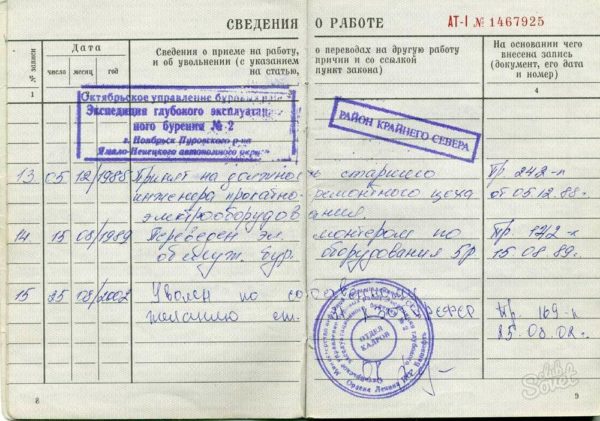 СВЕДЕНИЯ О РАБОТЕ
АТ-I № 1467925
№ записи
Дата
число месяц год
Сведения о приеме на работу, о переводах на другую работу
и об увольнении (с указанием причин и со ссылкой
на статью, пункт закона)
На основании чего
внесена запись
(документ, его дата
и номер)
1
4
Октябрьское управление
Экспедиция глубокого эксплуатацион
ного бурения № 2
г. Ноябрьск Пуровского р-на
Ямало-Ненецкого автономного округа
РАЙОН КРАЙНЕГО СЕВЕРА
13 05 12 1988 Принят на должность старшего Пр 242-л
инженера прокатно-ремонтного цеха от 05.12.88.
электрооборудования.
14 15 08 1989 Переведен эл. монтером по Пр 172-к
обслуж. бур. оборудования 5р 15.08.89.
15 2002 Уволен по собственному Пр. 169-к
желанию ст.
ОТДЕЛ
КАДРОВ
8
9